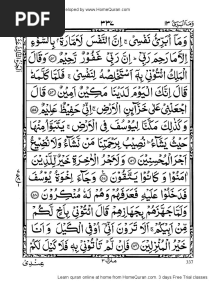 PDF
eloped by www.HomeQuran.com
وَمَآ أُبَرِّئُ ١٣
٣٣٤
وَمَآ أُبَرِّئُ نَفْسِي إِنَّ النَّفْسَ لَأَمَّارَةٌ بِالسُّوٓءِ
إِلَّا مَا رَحِمَ رَبِّي إِنَّ رَبِّي غَفُورٌ رَّحِيمٌ وَقَالَ
الْمَلِكُ ائْتُونِي بِهِٓ أَسْتَخْلِصْهُ لِنَفْسِي فَلَمَّا كَلَّمَهُ
قَالَ إِنَّكَ الْيَوْمَ لَدَيْنَا مَكِينٌ أَمِينٌ قَالَ
اجْعَلْنِي عَلَىٰ خَزَآئِنِ الْأَرْضِ إِنِّي حَفِيظٌ عَلِيمٌ
وَكَذَٰلِكَ مَكَّنَّا لِيُوسُفَ فِي الْأَرْضِ يَتَبَوَّأُ مِنْهَا
حَيْثُ يَشَآءُ نُصِيبُ بِرَحْمَتِنَا مَنْ نَّشَآءُ وَلَا نُضِيعُ
أَجْرَ الْمُحْسِنِينَ وَلَأَجْرُ الْآخِرَةِ خَيْرٌ لِّلَّذِينَ
آمَنُوا وَكَانُوا يَتَّقُونَ وَجَآءَ إِخْوَةُ يُوسُفَ
فَدَخَلُوا عَلَيْهِ فَعَرَفَهُمْ وَهُمْ لَهُ مُنْكِرُونَ
وَلَمَّا جَهَّزَهُمْ بِجَهَازِهِمْ قَالَ ائْتُونِي بِأَخٍ لَّكُمْ
مِّنْ أَبِيكُمْ أَلَا تَرَوْنَ أَنِّي أُوفِي الْكَيْلَ وَأَنَا
خَيْرُ الْمُنْزِلِينَ فَإِنْ لَّمْ تَأْتُونِي بِهِ فَلَا كَيْلَ لَكُمْ
عِنْدِي
337
Learn quran online at home from HomeQuran.com. 3 days Free Trial classes